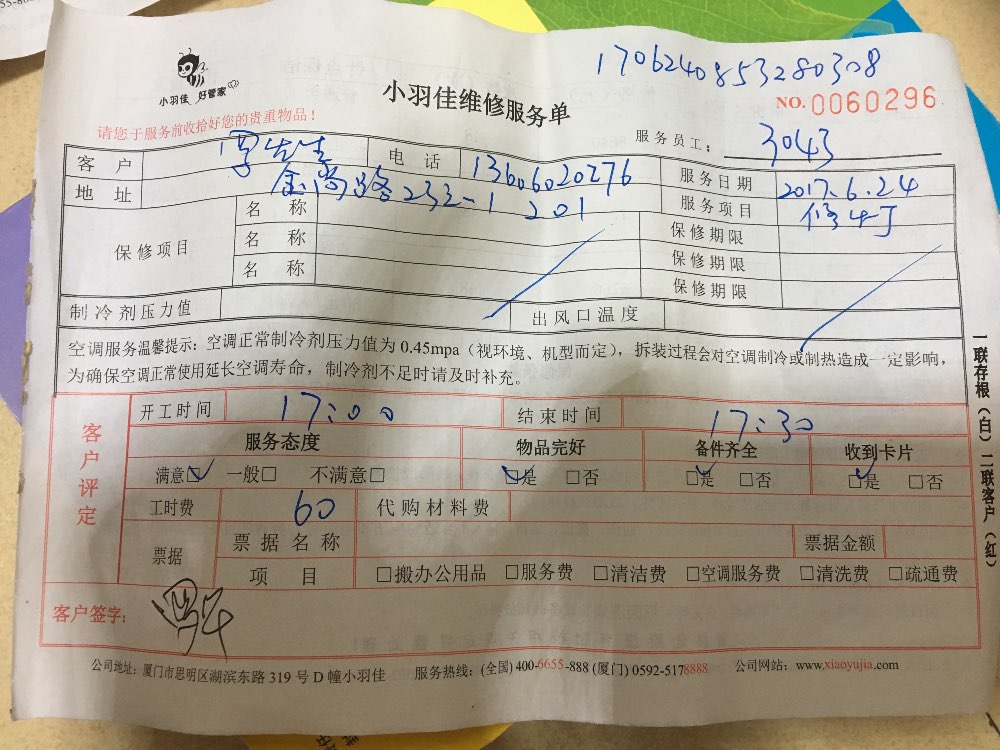 1706240853280308
小羽佳 好管家
小羽佳维修服务单
NO. 0060296
请您于服务前收拾好您的贵重物品！
服务员工： 3043
客户 先生 电话 13606020276 服务日期 2017.6.24
地址 金尚路232-1 201 服务项目 修
保修项目 名称 保修期限
名称 保修期限
名称 保修期限
制冷剂压力值 出风口温度
空调服务温馨提示：空调正常制冷剂压力值为 0.45mpa（视环境、机型而定），拆装过程会对空调制冷或制热造成一定影响，
为确保空调正常使用延长空调寿命，制冷剂不足时请及时补充。
客户评定
开工时间 17:00 结束时间 17:30
服务态度 物品完好 备件齐全 收到卡片
满意☑ 一般□ 不满意□ ☑是 □否 ☑是 □否 ☑是 □否
工时费 60 代购材料费
票据 票据名称 票据金额
项目 □搬办公用品 □服务费 □清洁费 □空调服务费 □清洗费 □疏通费
客户签字：
公司地址：厦门市思明区湖滨东路 319 号 D 幢小羽佳 服务热线：(全国) 400-6655-888 (厦门) 0592-5178888 公司网站：www.xiaoyujia.com
一联存根（白）二联客户（红）